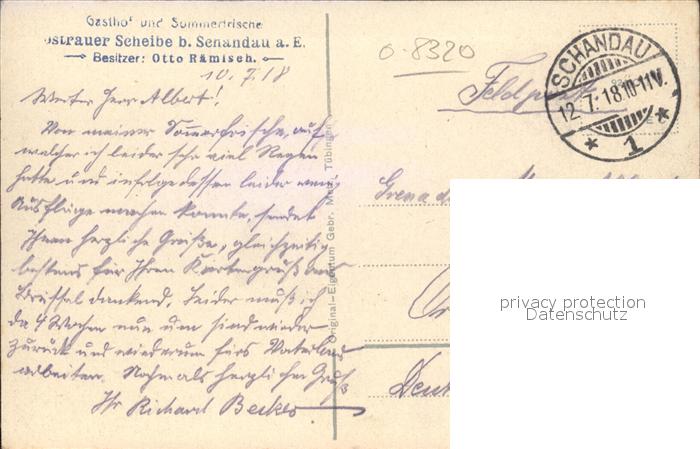 Gasthof und Sommerfrische
Ostrauer Scheibe b. Schandau a. E.
Besitzer: Otto Rämisch.
10.7.18
0-8320
Feldpost
SCHANDAU
12.7.18.10-11V.
* 1 *
Werter Herr Albert!
Von meiner Sommerfrische, auf
welcher ich leider sehr viel Regen
hatte und infolgedessen leider wenig
Ausflüge machen konnte, sendet
Ihnen herzliche Grüße, gleichzeitig
bestens für Ihren Kartengruß aus
Brüssel dankend. Leider muß ich
da 4 Wochen nun um sind wieder
zurück und wiederum fürs Vaterland
arbeiten. Nochmals herzlichen Gruß
Ihr Richard Becker
Original-Eigentum Gebr. Metz, Tübingen
Grenad
Deut
privacy protection
Datenschutz